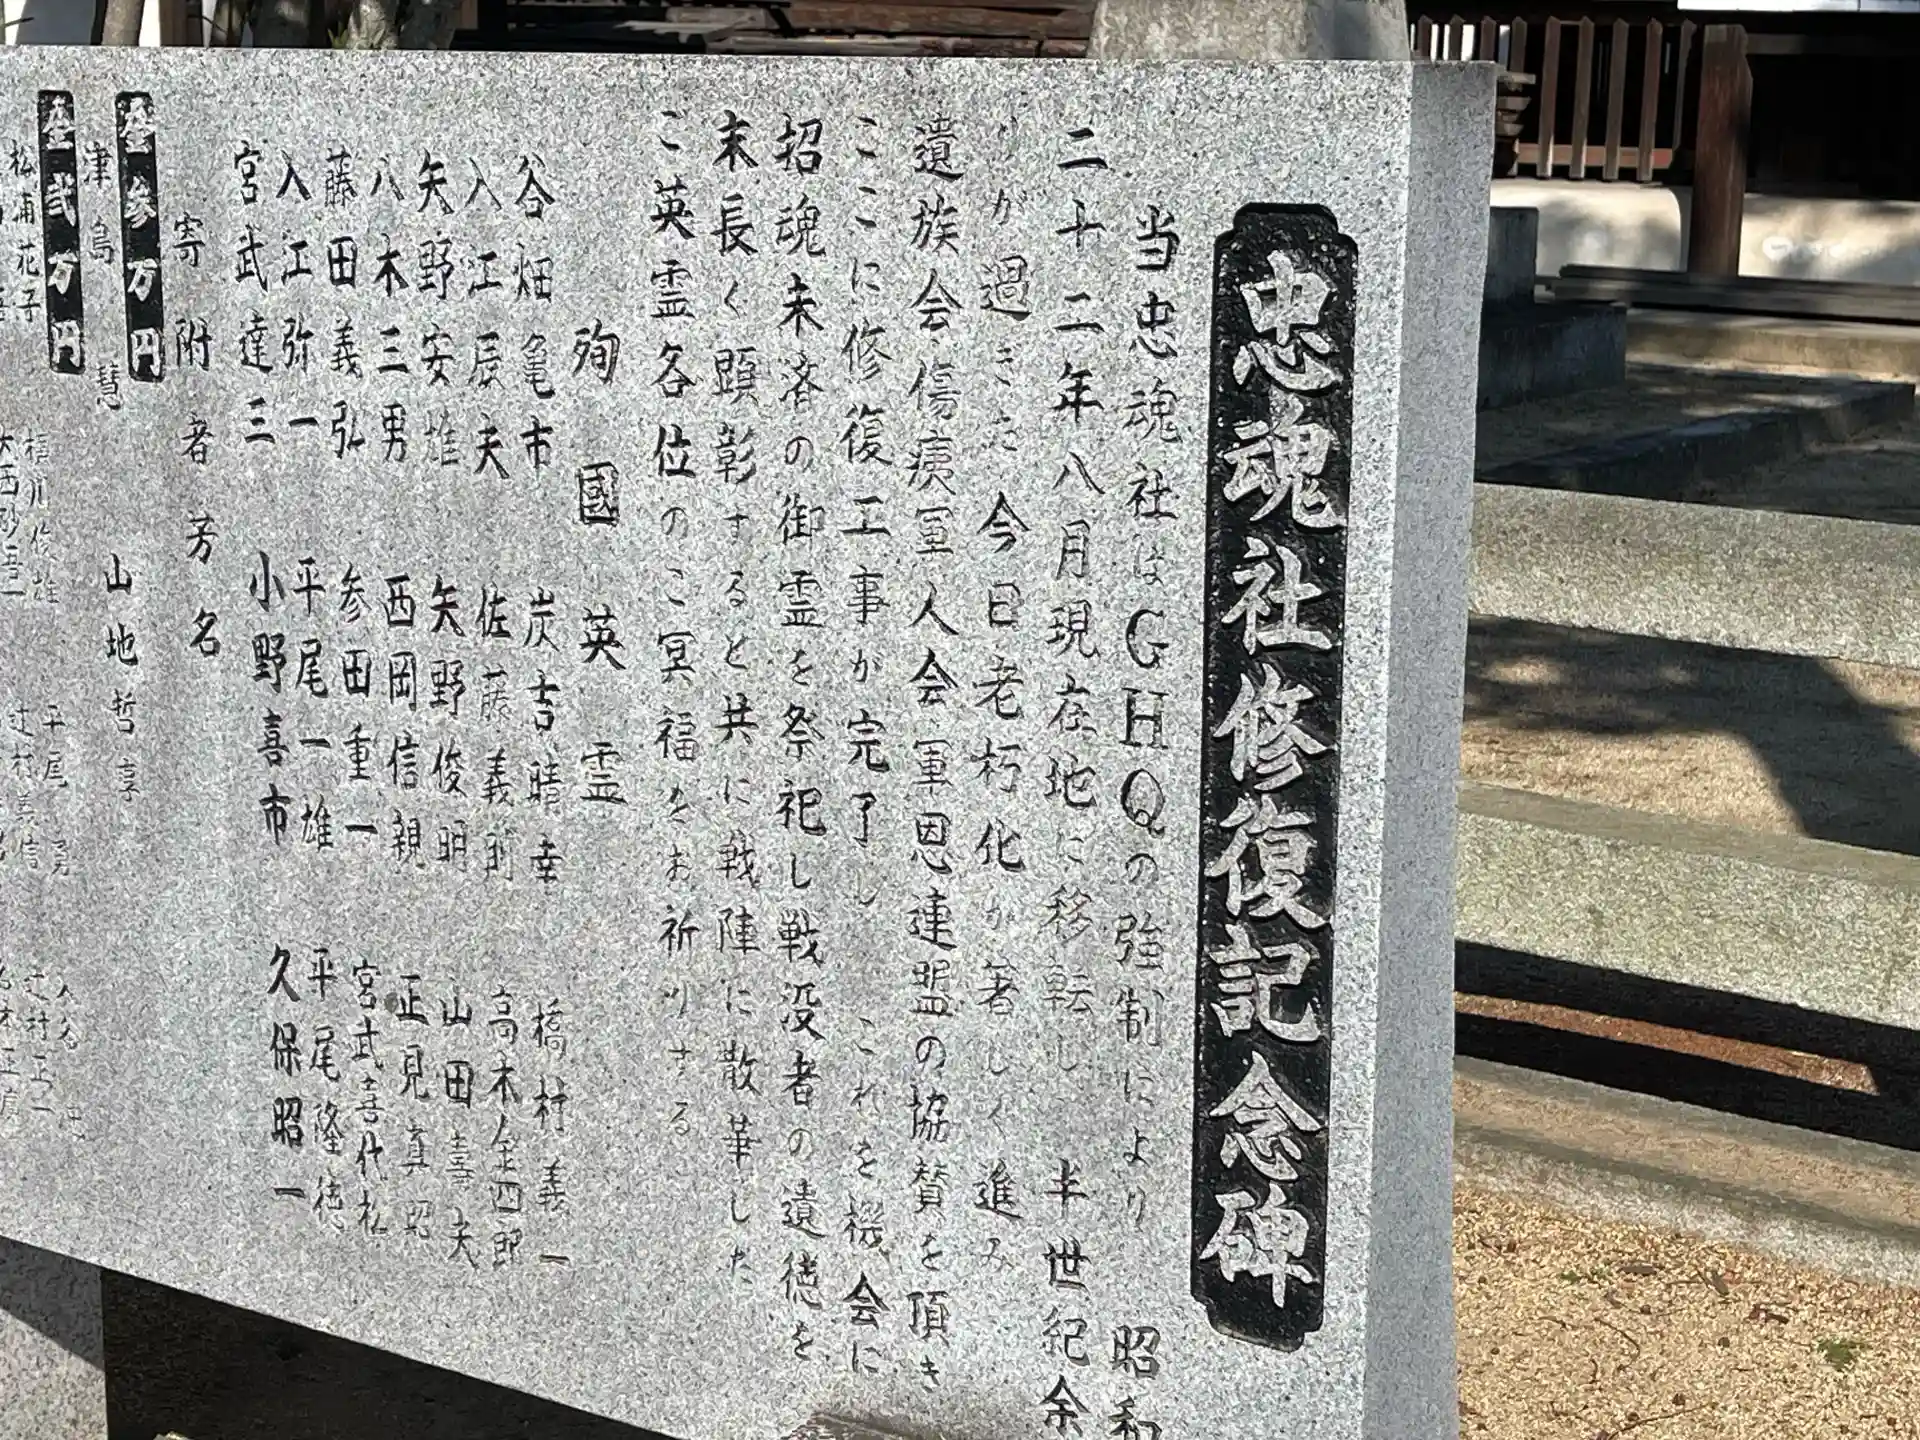 忠魂社修復記念碑
当忠魂社はGHQの強制により 昭和
二十二年八月現在地に移転し、半世紀余
りが過ぎた今日老朽化が著しく進み
遺族会傷痍軍人会軍恩連盟の協賛を頂き
ここに修復工事が完了し これを機会に
招魂未済の御霊を祭祀し戦没者の遺徳を
末長く顕彰すると共に戦陣に散華した
ご英霊各位のご冥福をお祈りする
殉國英霊
谷畑亀市 炭吉晴幸 橋村義一
入江辰夫 佐藤義則 高木金四郎
矢野安雄 矢野俊明 山田喜夫
八木三男 西岡信親 正見真昭
藤田義弘 参田重一 宮武喜代松
入江弥一 平尾一雄 平尾隆徳
宮武達三 小野喜市 久保昭一
寄附者芳名
金参万円
津島 慧 山地哲享
金弐万円
松浦花子 横川修雄 平尾 勇